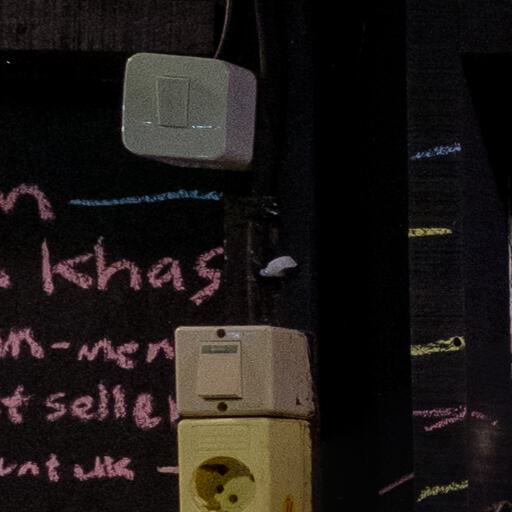 n
khas
m-men
t seller
untuk -